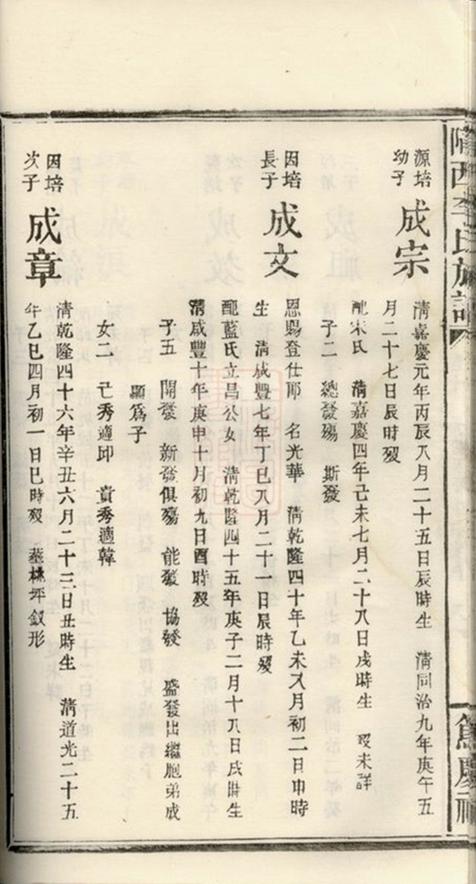 隴西李氏族譜
源培
幼子
成宗
清嘉慶元年丙辰八月二十五日辰時生 清同治九年庚午五
月二十七日辰時歿
配宋氏 清嘉慶四年己未七月二十八日戌時生 歿未詳
子二 總發殤 斯發
因培
長子
成文
恩賜登仕郎 名光華 清乾隆四十年乙未八月初二日申時
生 清咸豐七年丁巳八月二十一日辰時歿
配藍氏立昌公女 清乾隆四十五年庚子二月十八日戌時生
清咸豐十年庚申十月初九日酉時歿
子五 開發 新發俱殤 能發 協發 盛發出繼胞弟成
顯為子
女二 己秀適邱 貴秀適韓
因培
次子
成章
清乾隆四十六年辛丑六月二十三日丑時生 清道光二十五
年乙巳四月初一日巳時歿 墓樵坪釵形